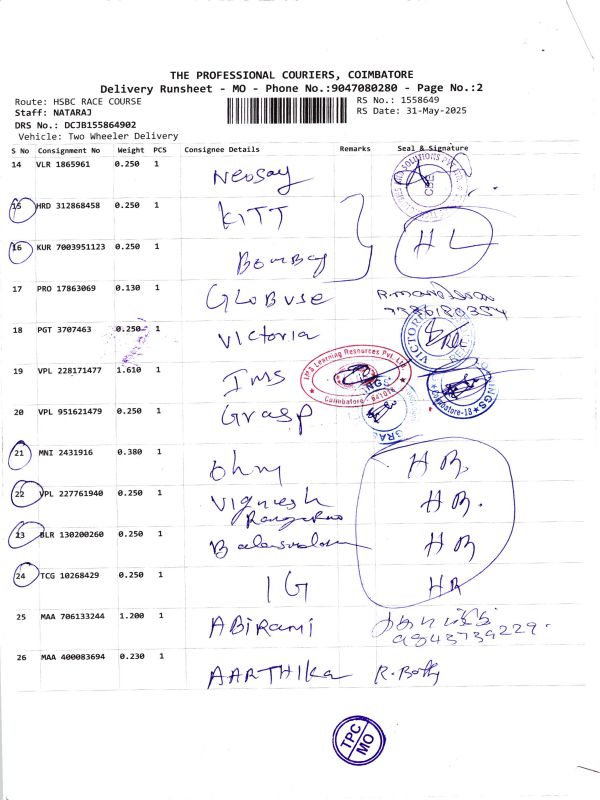 THE PROFESSIONAL COURIERS, COIMBATORE
Delivery Runsheet - MO - Phone No.:9047080280 - Page No.:2
Route: HSBC RACE COURSE
RS No.: 1558649
Staff: NATARAJ
RS Date: 31-May-2025
DRS No.: DCJB155864902
Vehicle: Two Wheeler Delivery
S No Consignment No Weight PCS Consignee Details Remarks Seal & Signature
14 VLR 1865961 0.250 1 Neosay
15 HRD 312868458 0.250 1 KITT
16 KUR 7003951123 0.250 1 Bombay H L
17 PRO 17863069 0.130 1 GLOBUSE
18 PGT 3707463 0.250 1 Victoria
19 VPL 228171477 1.610 1 IMS
20 VPL 951621479 0.250 1 Grasp
Coimbatore-18
21 MNI 2431916 0.380 1 Ohm H B.
22 VPL 227761940 0.250 1 Vignesh H B.
23 BLR 130200260 0.250 1 H B
24 TCG 10268429 0.250 1 IG
25 MAA 706133244 1.200 1 ABIRAMI
9843739229.
26 MAA 400083694 0.230 1 AARTHIKA
TPC
MO